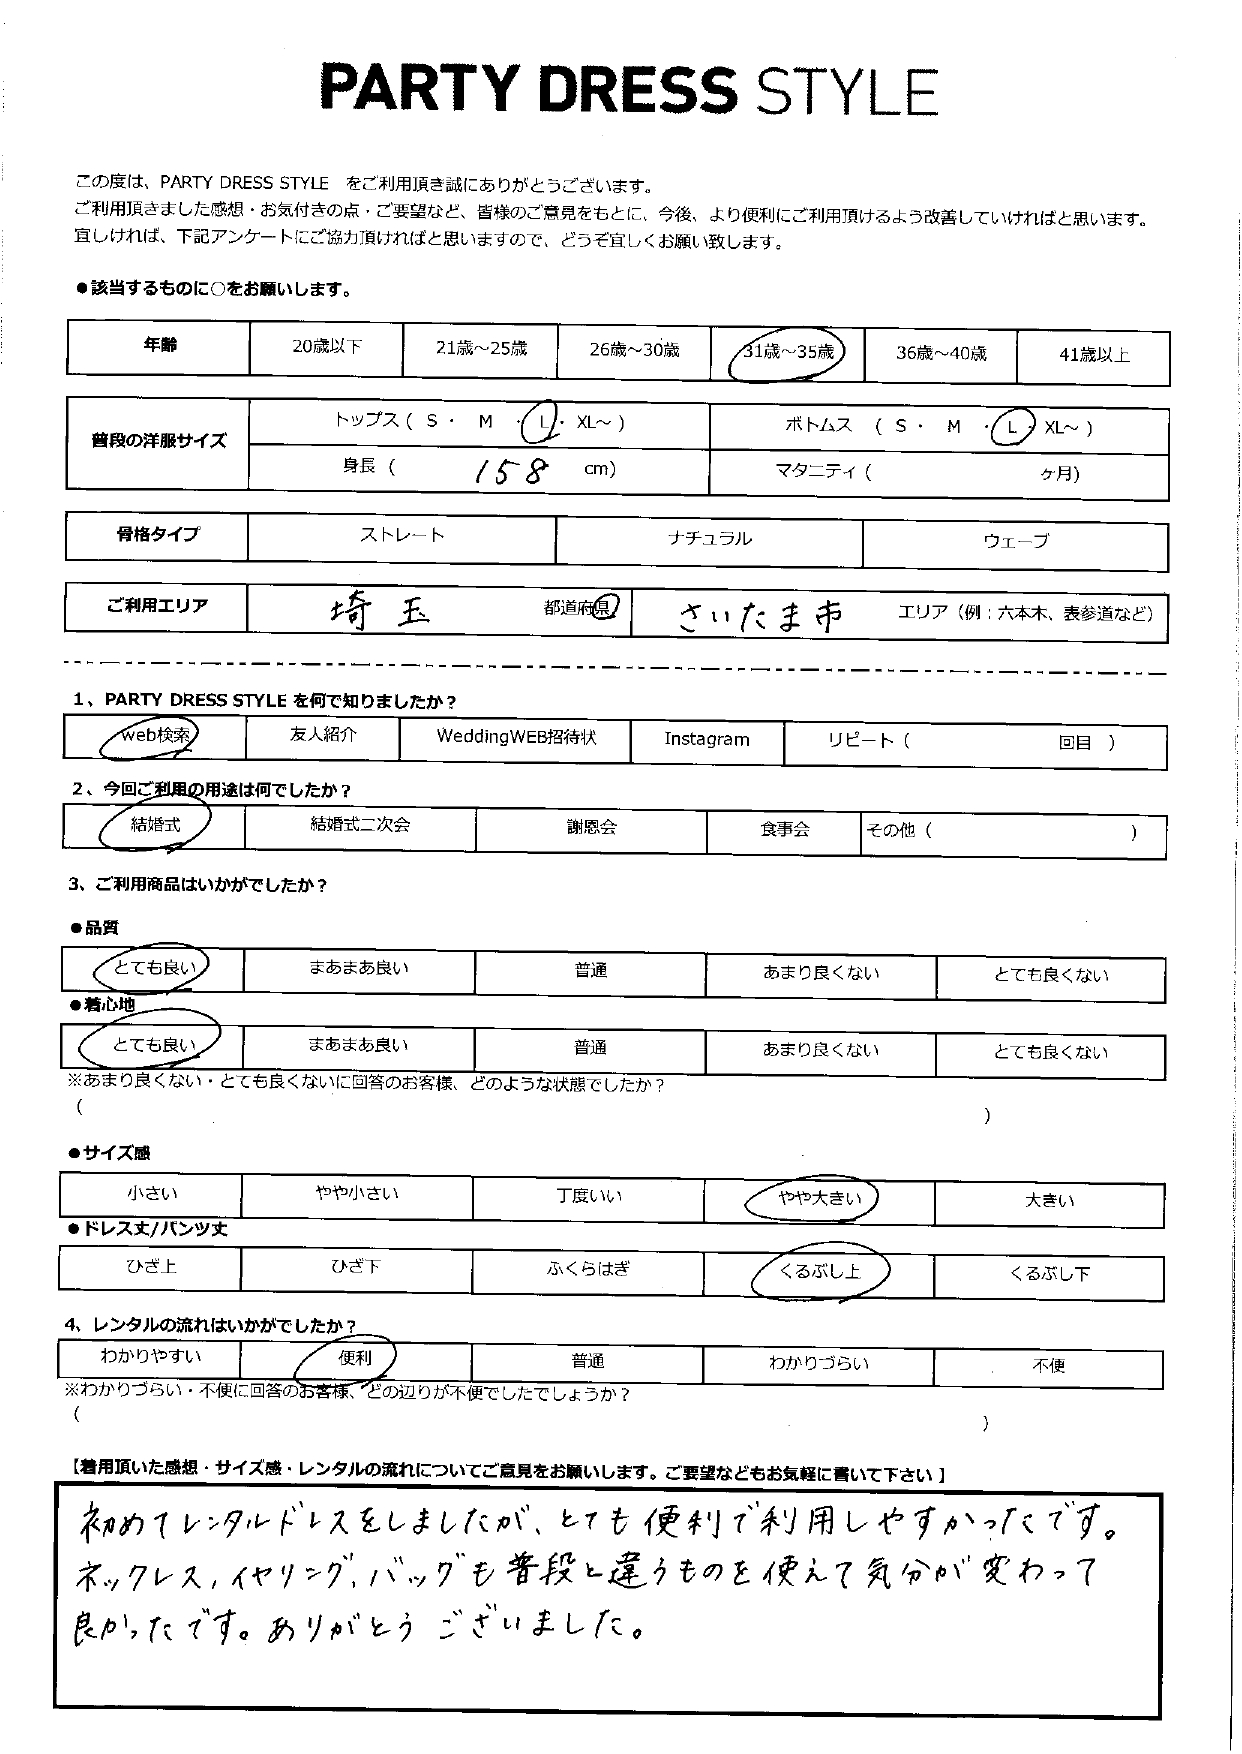 PARTY DRESS STYLE
この度は、PARTY DRESS STYLE をご利用頂き誠にありがとうございます。
ご利用頂きました感想・お気付きの点・ご要望など、皆様のご意見をもとに、今後、より便利にご利用頂けるよう改善していければと思います。
宜しければ、下記アンケートにご協力頂ければと思いますので、どうぞ宜しくお願い致します。
●該当するものに○をお願いします。
年齢 20歳以下 21歳～25歳 26歳～30歳 31歳～35歳 36歳～40歳 41歳以上
普段の洋服サイズ トップス ( S ・ M ・ L ・ XL～ ) ボトムス ( S ・ M ・ L ・ XL～ )
身長 ( 158 cm) マタニティ ( ヶ月)
骨格タイプ ストレート ナチュラル ウェーブ
ご利用エリア 埼玉 都道府県 さいたま市 エリア（例：六本木、表参道など）
1、PARTY DRESS STYLE を何で知りましたか？
web検索 友人紹介 WeddingWEB招待状 Instagram リピート ( 回目 )
2、今回ご利用の用途は何でしたか？
結婚式 結婚式二次会 謝恩会 食事会 その他 ( )
3、ご利用商品はいかがでしたか？
●品質
とても良い まあまあ良い 普通 あまり良くない とても良くない
●着心地
とても良い まあまあ良い 普通 あまり良くない とても良くない
※あまり良くない・とても良くないに回答のお客様、どのような状態でしたか？
( )
●サイズ感
小さい やや小さい 丁度いい やや大きい 大きい
●ドレス丈/パンツ丈
ひざ上 ひざ下 ふくらはぎ くるぶし上 くるぶし下
4、レンタルの流れはいかがでしたか？
わかりやすい 便利 普通 わかりづらい 不便
※わかりづらい・不便に回答のお客様、どの辺りが不便でしたでしょうか？
( )
【着用頂いた感想・サイズ感・レンタルの流れについてご意見をお願いします。ご要望などもお気軽に書いて下さい】
初めてレンタルドレスをしましたが、とても便利で利用しやすかったです。
ネックレス,イヤリング,バッグも普段と違うものを使えて気分が変わって
良かったです。ありがとうございました。